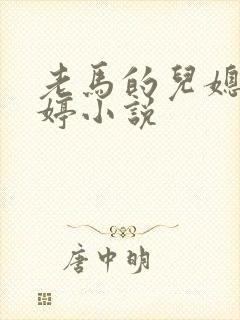 老馬的兒媳
婷小說
唐中明